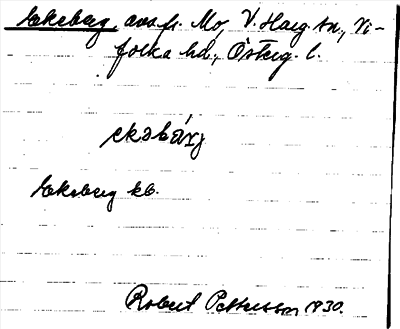 Ekeberg, avs. fr. Mo, V. Harg sn., Vi-
folka hd., Österg. l.
ekəbärj
Ekeberg kb.
Robert Pettersson 1930.